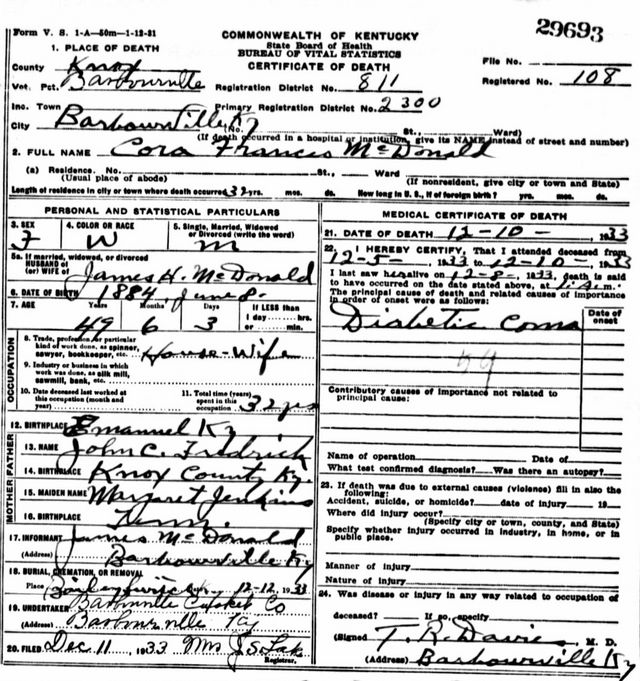 29693
Form V. S. 1-A—50m—1-12-31
COMMONWEALTH OF KENTUCKY
State Board of Health
BUREAU OF VITAL STATISTICS
CERTIFICATE OF DEATH
1. PLACE OF DEATH
County Knox
File No.
Vot. Pct. Barbourville Registration District No. 811 Registered No. 108
Inc. Town Primary Registration District No. 2300
City Barbourville Ky (No. St., Ward)
(If death occurred in a hospital or institution, give its NAME instead of street and number)
2. FULL NAME Cora Frances McDonald
(a) Residence. No. St., Ward
(Usual place of abode) (If nonresident, give city or town and State)
Length of residence in city or town where death occurred 32 yrs. mos. ds. How long in U. S., if of foreign birth? yrs. mos. ds.
PERSONAL AND STATISTICAL PARTICULARS
3. SEX 4. COLOR OR RACE 5. Single, Married, Widowed or Divorced (write the word)
F W m
5a. If married, widowed, or divorced
HUSBAND of
(or) WIFE of James H. McDonald
6. DATE OF BIRTH 1884, June 8.
7. AGE Years Months Days If LESS than 1 day ....hrs. or ....min.
49 6 3
OCCUPATION
8. Trade, profession, or particular kind of work done, as spinner, sawyer, bookkeeper, etc. House-Wife
9. Industry or business in which work was done, as silk mill, sawmill, bank, etc.
10. Date deceased last worked at this occupation (month and year)
11. Total time (years) spent in this occupation 32 yrs
12. BIRTHPLACE Emanuel Ky
FATHER
13. NAME John C. Fredrick
14. BIRTHPLACE Knox County Ky.
MOTHER
15. MAIDEN NAME Margaret Jenkins
16. BIRTHPLACE Tenn.
17. INFORMANT James McDonald
(Address) Barbourville Ky
18. BURIAL, CREMATION, OR REMOVAL
Place 12-12, 1933
19. UNDERTAKER Barbourville Co
(Address) Barbourville Ky
20. FILED Dec 11 1933 Mrs J. S.
Registrar.
MEDICAL CERTIFICATE OF DEATH
21. DATE OF DEATH 12-10-, 1933
22. I HEREBY CERTIFY, That I attended deceased from
12-5-, 1933 to 12-10-, 1933
I last saw her alive on 12-8-, 1933, death is said
to have occurred on the date stated above, at 1 A. m.
The principal cause of death and related causes of importance
in order of onset were as follows:
Date of onset
Diabetic Coma
59
Contributory causes of importance not related to
principal cause:
Name of operation Date of
What test confirmed diagnosis? Was there an autopsy?
23. If death was due to external causes (violence) fill in also the
following:
Accident, suicide, or homicide? date of injury 19
Where did injury occur?
(Specify city or town, county, and State)
Specify whether injury occurred in industry, in home, or in
public place.
Manner of injury
Nature of injury
24. Was disease or injury in any way related to occupation of
deceased? If so, specify
(Signed T. R. Davies, M. D.
(Address) Barbourville Ky